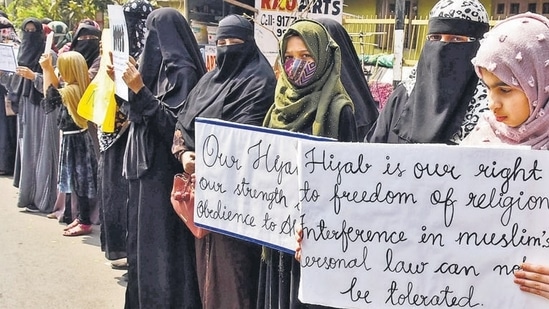 RAO ARTS
Cell: 9177
Our Hija
our strength
Obedience to
Hijab is our right
to freedom of religion
Interference in muslim's
ersonal law can no
be tolerated.